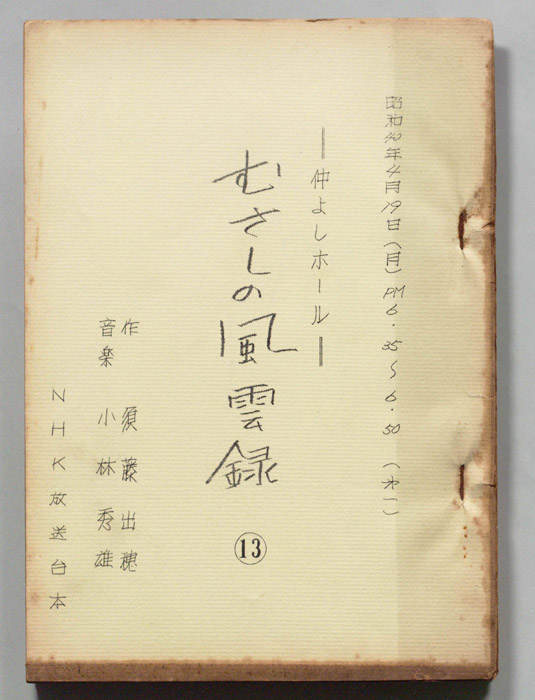 昭和40年4月19日(月)PM6・35〜6・50(オ一)
―仲よしホール―
むさしの風雲録
⑬
作 須藤出穂
音楽 小林秀雄
NHK放送台本